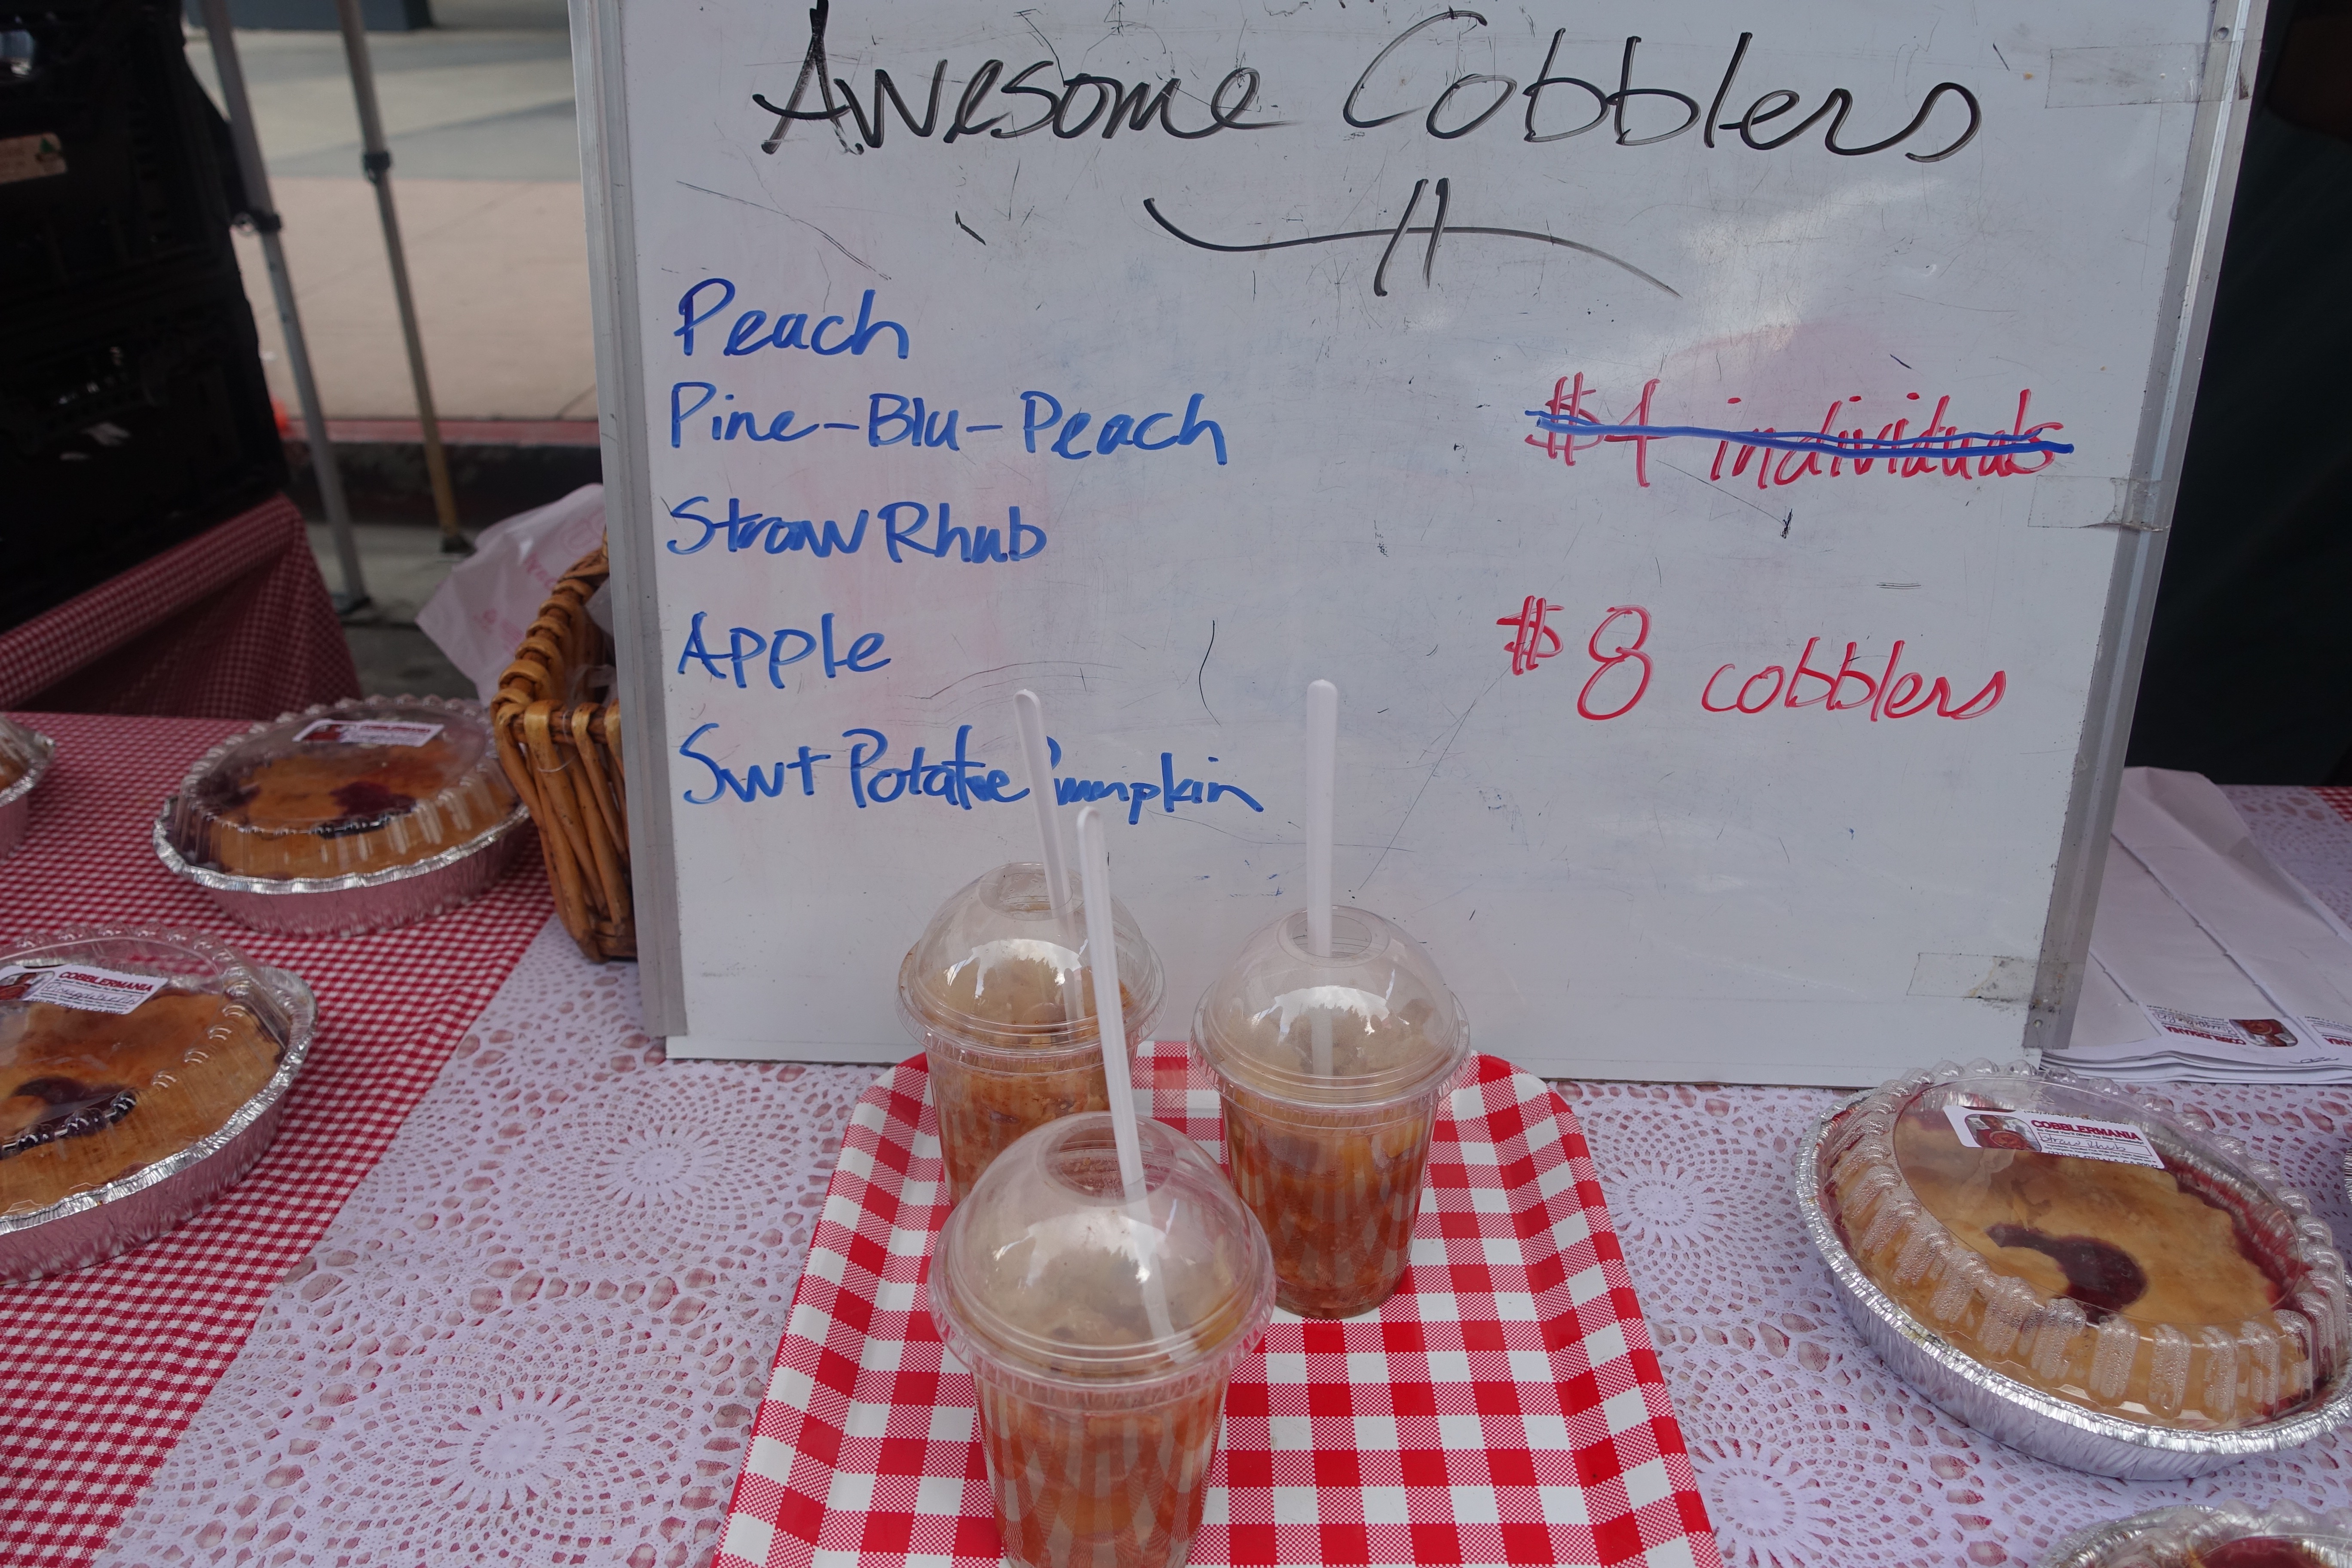 Awesome Cobblers
Peach
Pine-Blu-Peach
$4 individuals
StrawRhub
$8 cobblers
Apple
Swt Potatoe Pumpkin
COBBLERMANIA
COBBLERMANIA
Straw Rhub
COBBLERMANIA